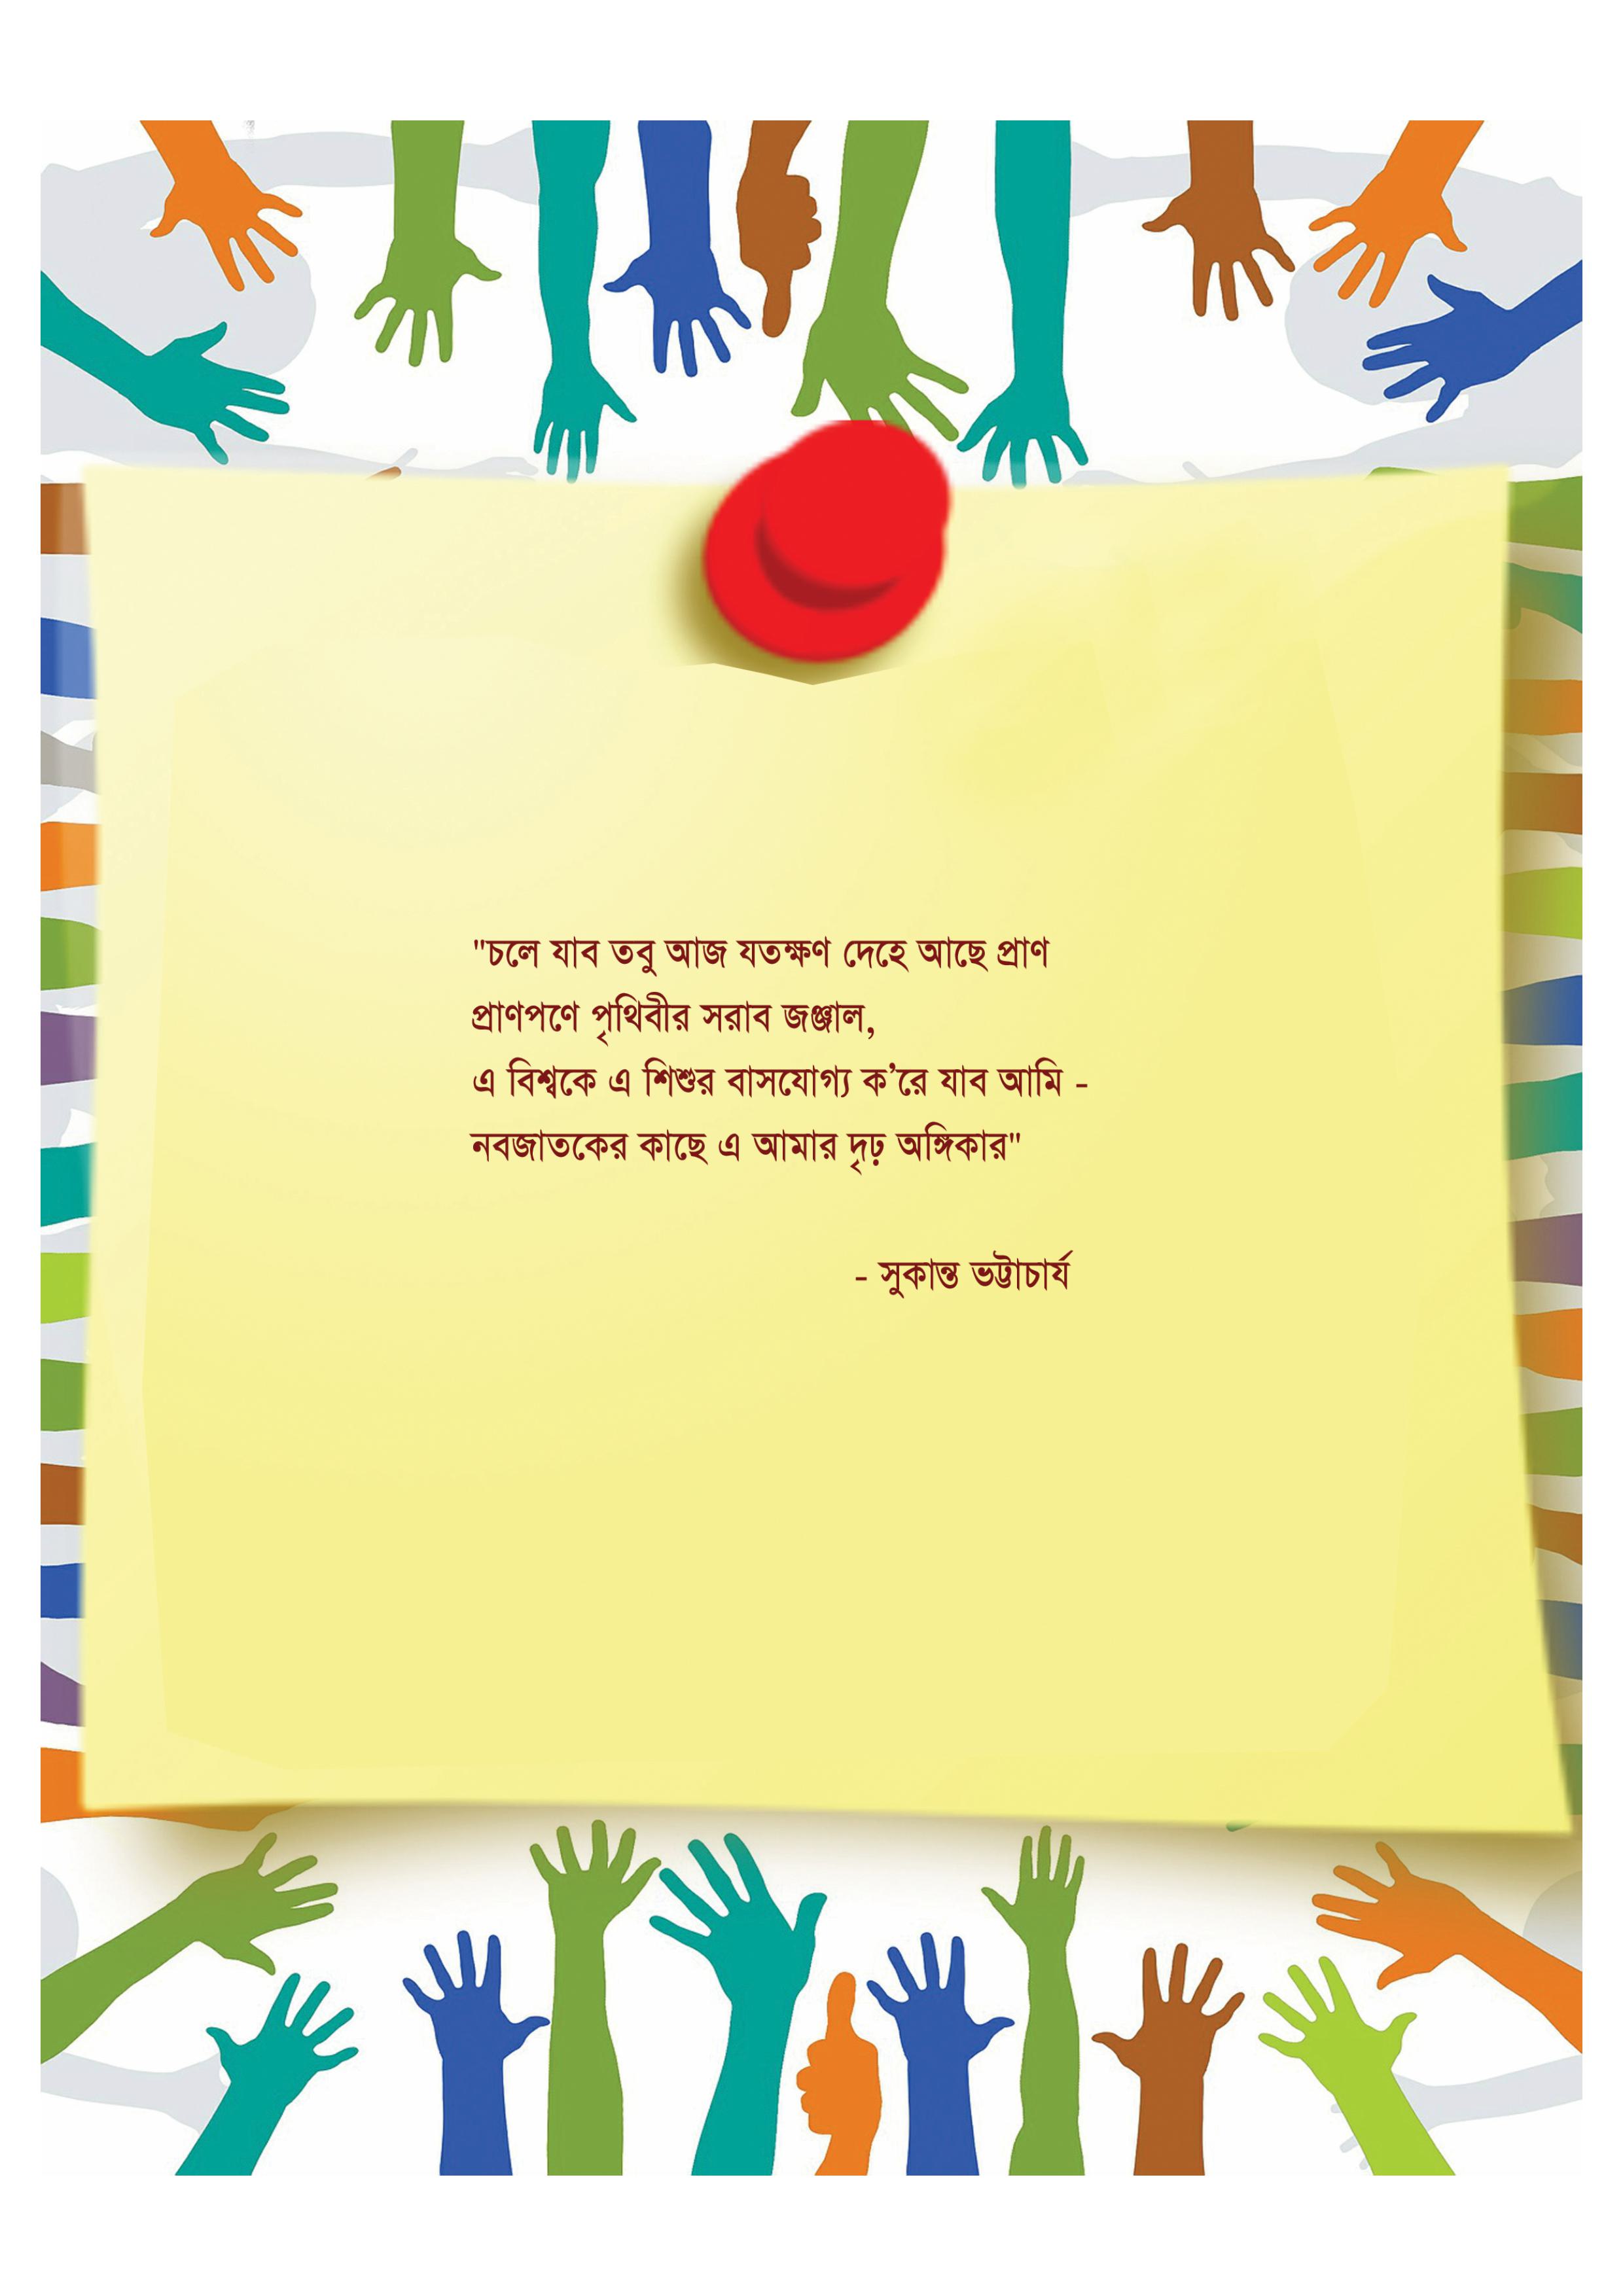 "চলে যাব তবু আজ যতক্ষণ দেহে আছে প্রাণ
প্রাণপণে পৃথিবীর সরাব জঞ্জাল,
এ বিশ্বকে এ শিশুর বাসযোগ্য ক’রে যাব আমি -
নবজাতকের কাছে এ আমার দৃঢ় অঙ্গিকার"
- সুকান্ত ভট্টাচার্য